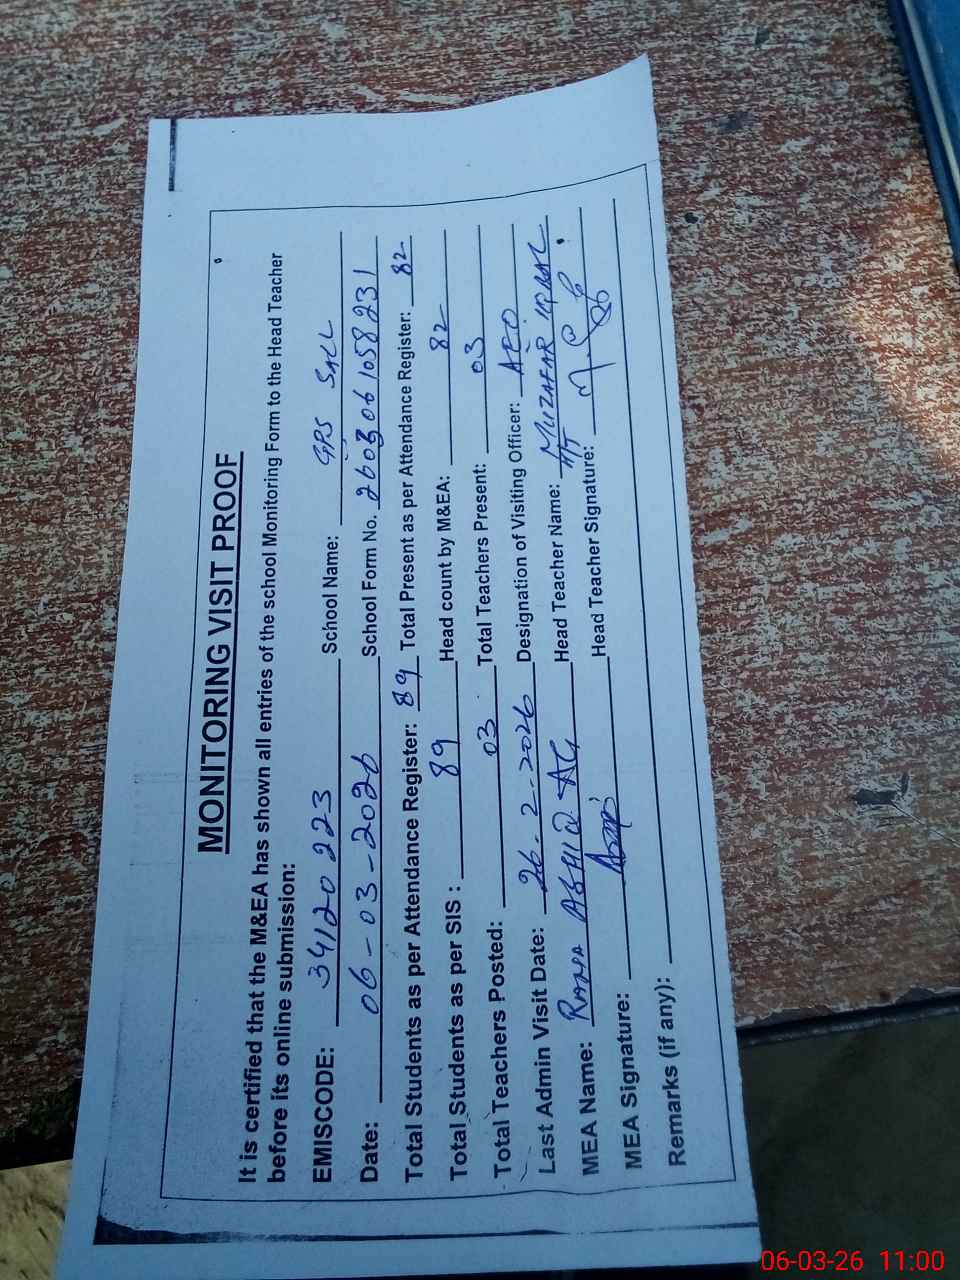 MONITORING VISIT PROOF
It is certified that the M&EA has shown all entries of the school Monitoring Form to the Head Teacher
before its online submission:
EMISCODE: 34120223 School Name: GPS SALL
Date: 06-03-2026 School Form No. 2603061058231
Total Students as per Attendance Register: 89 Total Present as per Attendance Register: 82
Total Students as per SIS : 89 Head count by M&EA: 82
Total Teachers Posted: 03 Total Teachers Present: 03
Last Admin Visit Date: 26.2.2026 Designation of Visiting Officer: AEO
MEA Name: Head Teacher Name: MUZAFAR IQBAL
HT
MEA Signature: Head Teacher Signature:
Remarks (if any):
06-03-26 11:00